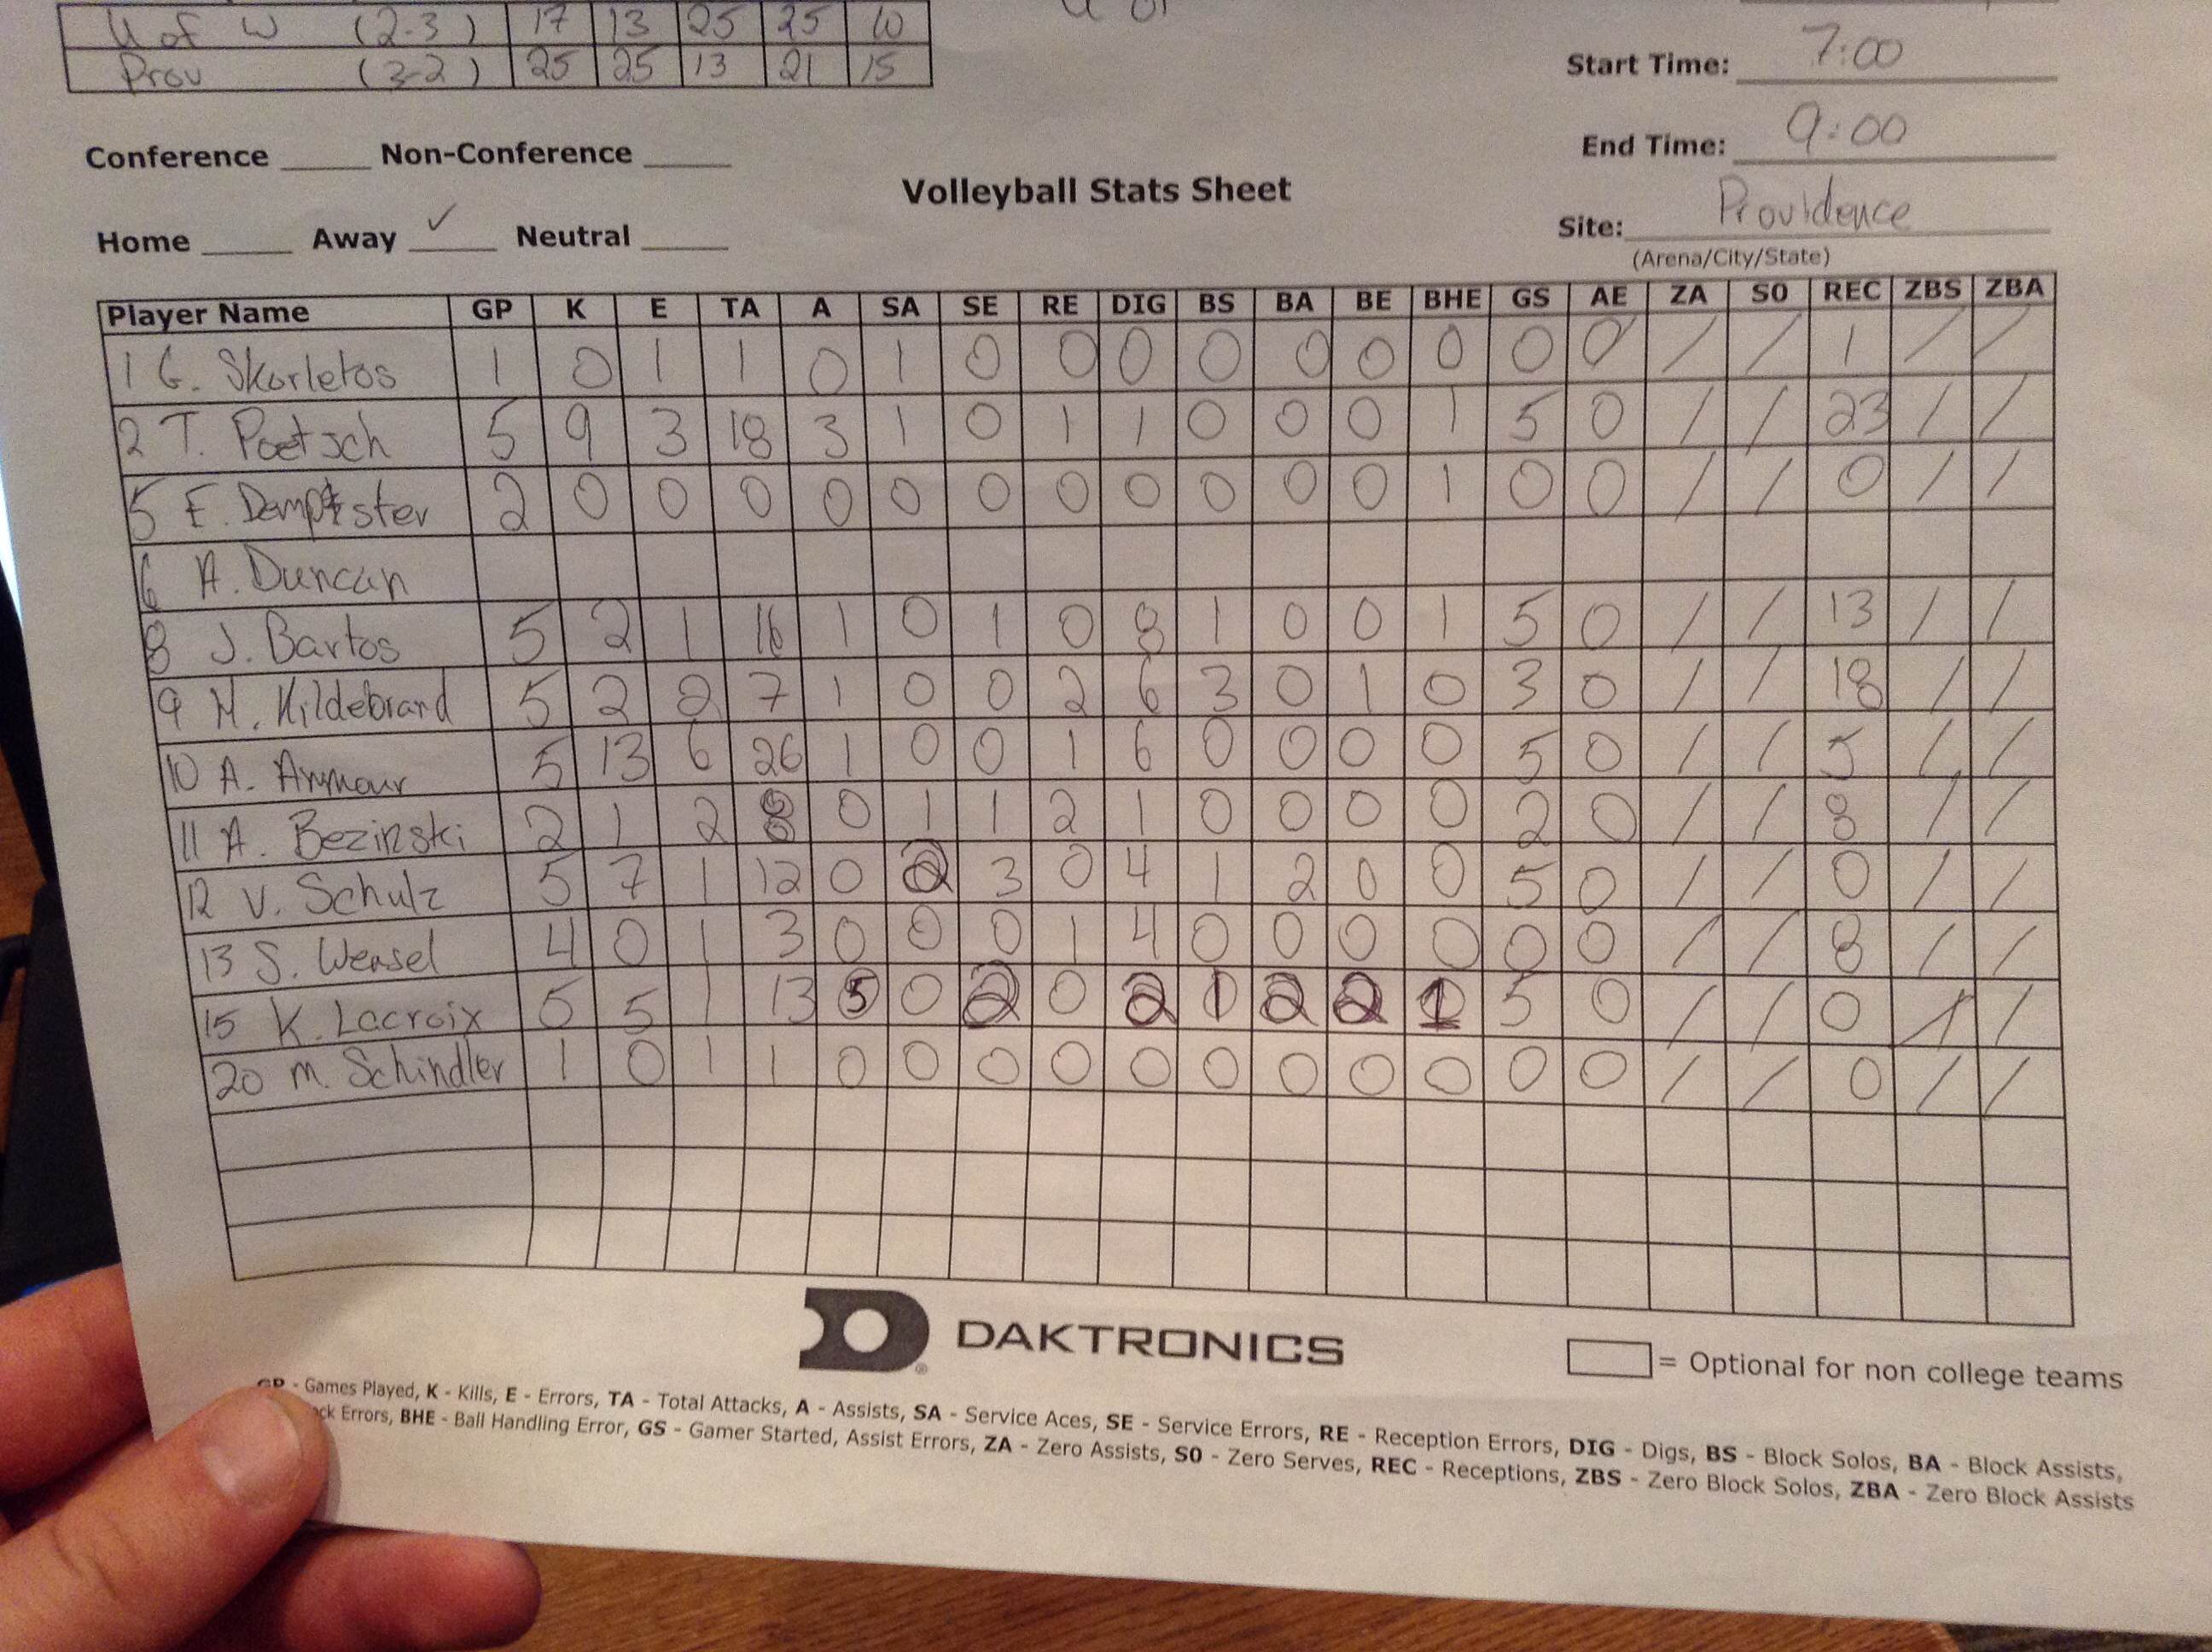 U of W (2-3) 17 13 25 25 10
Prov (3-2) 25 25 13 21 15
Start Time: 7:00
End Time: 9:00
Conference Non-Conference
Volleyball Stats Sheet
Home Away ✓ Neutral
Site: Providence
(Arena/City/State)
Player Name GP K E TA A SA SE RE DIG BS BA BE BHE GS AE ZA S0 REC ZBS ZBA
1 G. Skorletos 1 0 1 1 0 1 0 0 0 0 0 0 0 0 0 / / 1 / /
2 T. Poetsch 5 9 3 18 3 1 0 1 1 0 0 0 1 5 0 / / 23 / /
5 E. Dempster 2 0 0 0 0 0 0 0 0 0 0 0 1 0 0 / / 0 / /
6 A. Duncan
8 J. Bartos 5 2 1 16 1 0 1 0 8 1 0 0 1 5 0 / / 13 / /
9 H. Hildebrand 5 2 2 7 1 0 0 2 6 3 0 1 0 3 0 / / 18 / /
10 A. Armour 5 13 6 26 1 0 0 1 6 0 0 0 0 5 0 / / 5 / /
11 A. Bezinski 2 1 2 8 0 1 1 2 1 0 0 0 0 2 0 / / 8 / /
12 V. Schulz 5 7 1 12 0 2 3 0 4 1 2 0 0 5 0 / / 0 / /
13 S. Wensel 4 0 1 3 0 0 0 1 4 0 0 0 0 0 0 / / 8 / /
15 K. Lacroix 5 5 1 13 5 0 2 0 2 1 2 2 1 5 0 / / 0 / /
20 M. Schindler 1 0 1 1 0 0 0 0 0 0 0 0 0 0 0 / / 0 / /
DAKTRONICS
= Optional for non college teams
GP - Games Played, K - Kills, E - Errors, TA - Total Attacks, A - Assists, SA - Service Aces, SE - Service Errors, RE - Reception Errors, DIG - Digs, BS - Block Solos, BA - Block Assists,
ck Errors, BHE - Ball Handling Error, GS - Gamer Started, Assist Errors, ZA - Zero Assists, S0 - Zero Serves, REC - Receptions, ZBS - Zero Block Solos, ZBA - Zero Block Assists